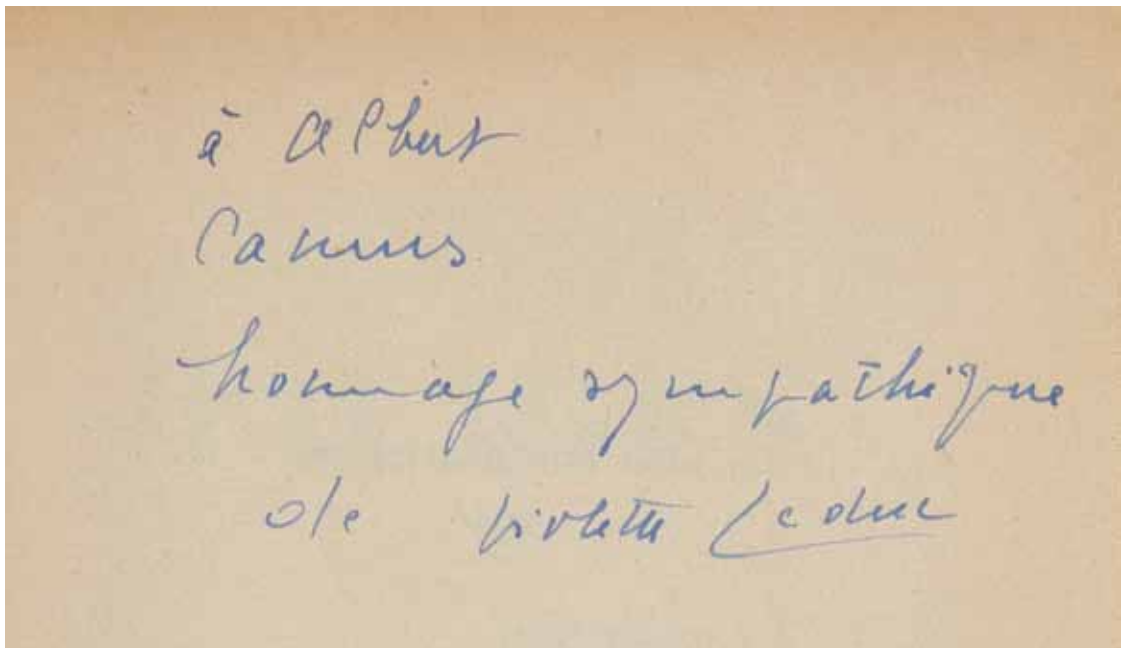 à Albert
Camus
hommage sympathique
de violette Leduc